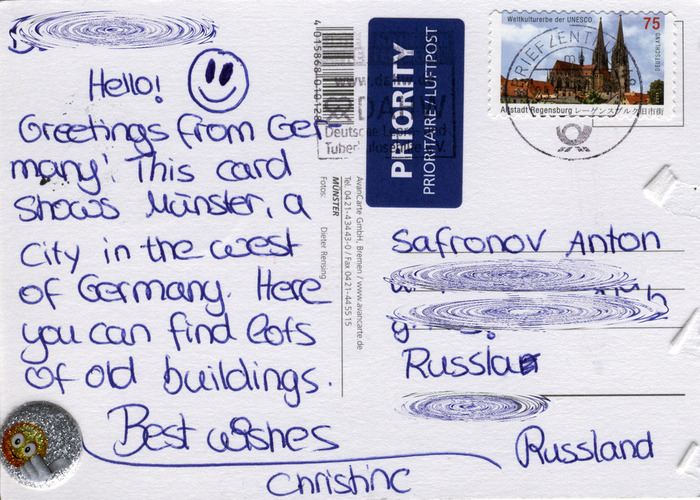 Hello!
Greetings from Ger-
many! This card
shows Münster, a
city in the west
of Germany. Here
you can find lots
of old buildings.
Best wishes
Christine
4 015868 010128
AvanCarte GmbH, Bremen / www.avancarte.de
Tel. 04 21-4 34 43-0 / Fax 04 21-44 55 15
MÜNSTER
Fotos: Dieter Rensing
PRIORITY
PRIORITAIRE/LUFTPOST
Weltkulturerbe der UNESCO
75
DEUTSCHLAND
Altstadt Regensburg レーゲンスブルク旧市街
BRIEFZENTRUM
Safronov Anton
Russland